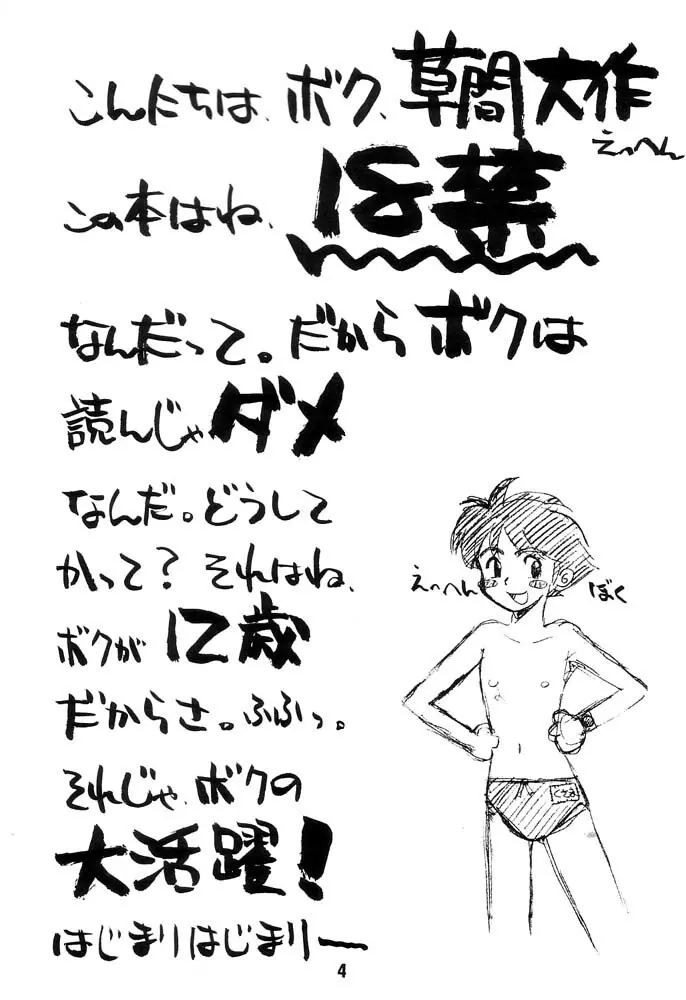 こんにちは、ボク、草間大作
えっへん
この本はね、18禁
なんだって。だからボクは
読んじゃダメ
なんだ。どうして
かって？それはね、
ボクが12歳
だからさ。ふふっ。
それじゃ、ボクの
大活躍！
はじまりはじまりー
えっへん
ぼく
くさま
4